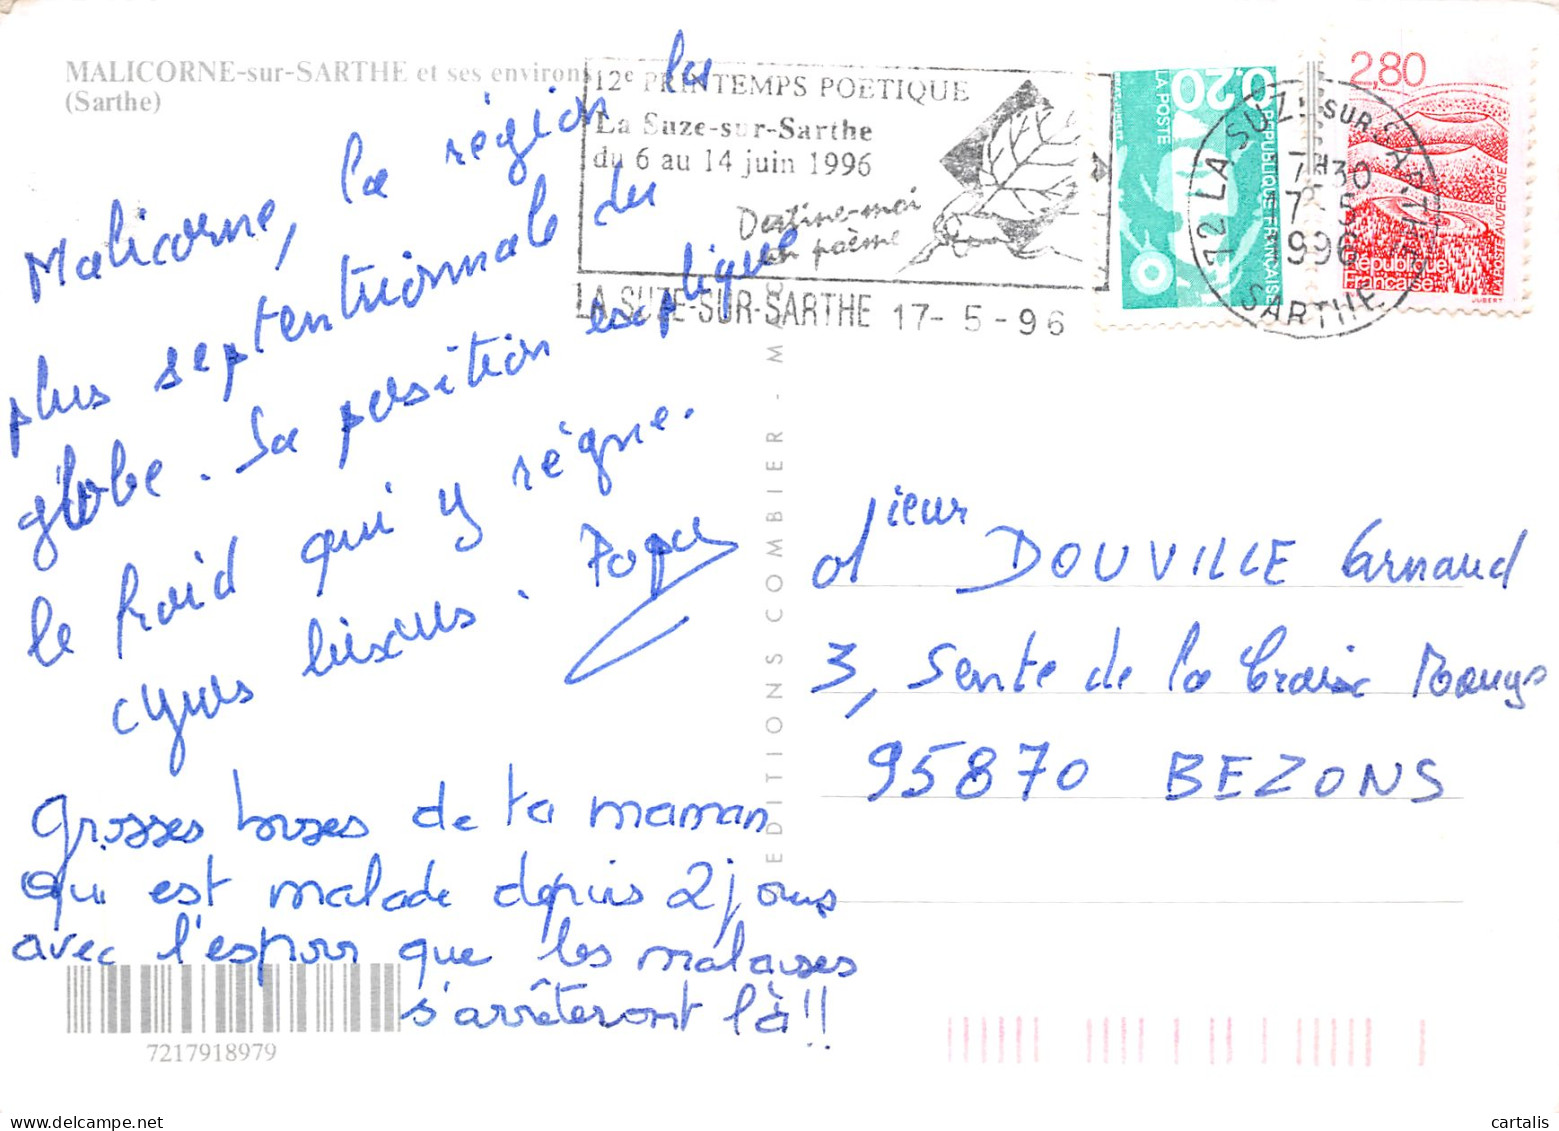 MALICORNE-sur-SARTHE et ses environs
(Sarthe)
12e PRINTEMPS POETIQUE
La Suze-sur-Sarthe
du 6 au 14 juin 1996
Dessine-moi
un poème
LA SUZE-SUR-SARTHE 17-5-96
0,20
LA POSTE
REPUBLIQUE FRANCAISE
72 LA SUZE-SUR-SARTHE
7H30
17-5
1996
SARTHE
2,80
AUVERGNE
République
Française
JUBERT
Malicorne, la région la
plus septentrionnale du
globe. Sa position explique
le froid qui y règne.
Papa
Grosses bises de ta maman
qui est malade depuis 2 jours
avec l'espoir que les malaises
s'arrêteront là !!
EDITIONS COMBIER - MACON
Mieur DOUVILLE Arnaud
3, Sente de la Croix
95870 BEZONS
7217918979
delcampe.net
cartalis